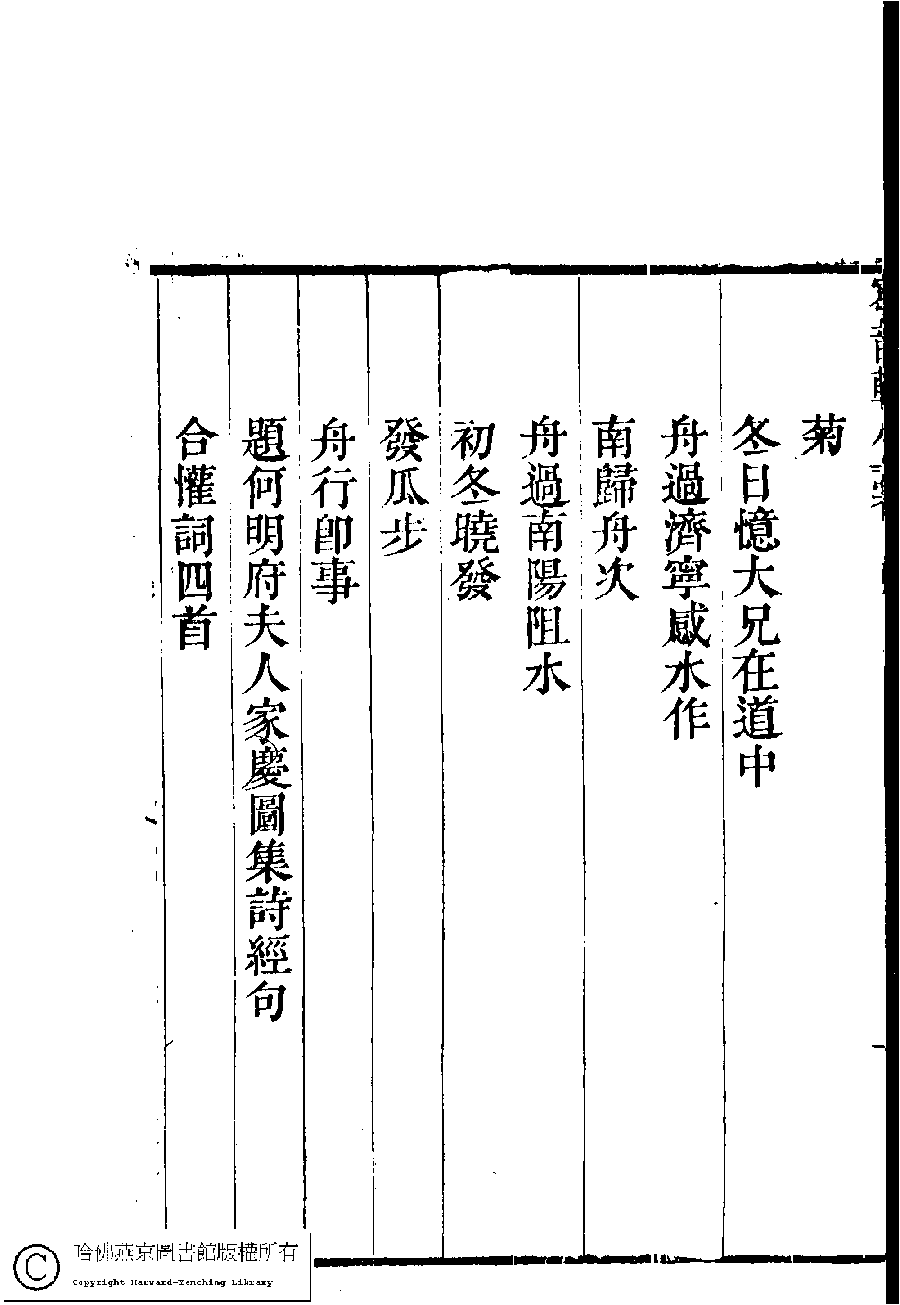 菊
冬日憶大兄在道中
舟過濟寧感水作
南歸舟次
舟過南陽阻水
初冬曉發
發瓜步
舟行卽事
題何明府夫人家慶圖集詩經句
合懽詞四首
哈佛燕京圖書館版權所有
Copyright Harvard-Yenching Library